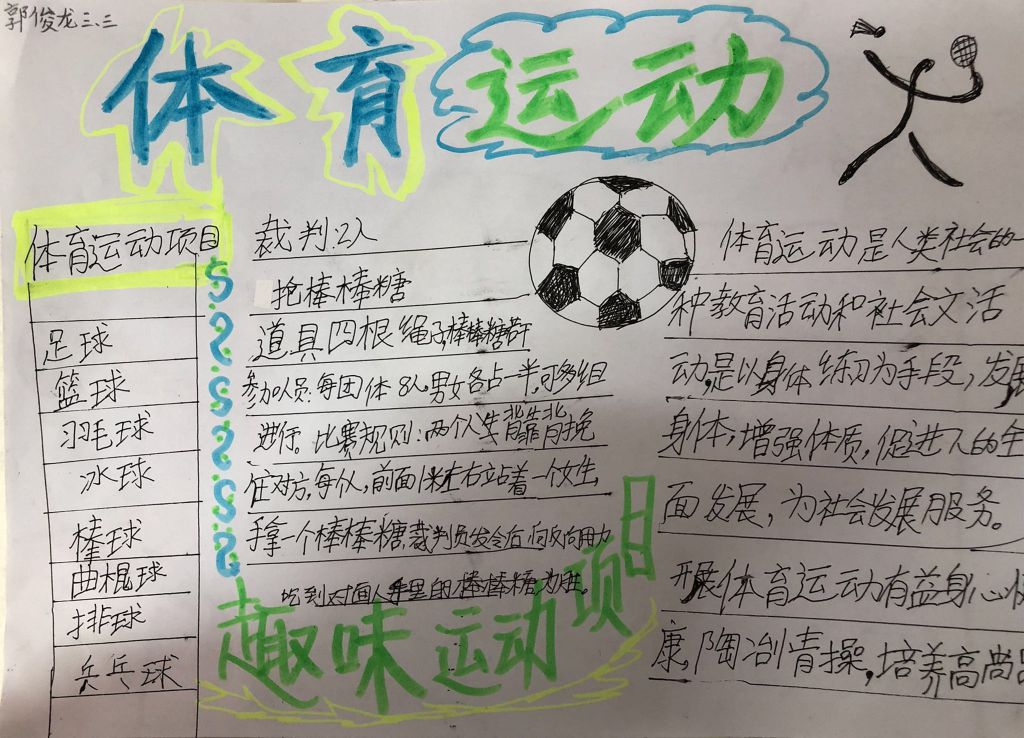 郭俊龙三.三
体育运动
体育运动项目
足球
篮球
羽毛球
冰球
棒球
曲棍球
排球
兵乓球
裁判:2人
抢棒棒糖
道具四根绳子,棒棒糖若干
参加人员:每团体8人,男女各占一半,可多组
进行。比赛规则:两个人先背靠背挽
住对方,每队,前面1米左右站着一个女生,
手拿一个棒棒糖,裁判员发令后向反向用力
吃到对面人手里的棒棒糖为胜。
趣味运动项目
体育运动是人类社会的一
种教育活动和社会文活
动,是以身体练习为手段,发展
身体,增强体质,促进人的全
面发展,为社会发展服务。
开展体育运动有益身心健
康,陶冶情操,培养高尚品